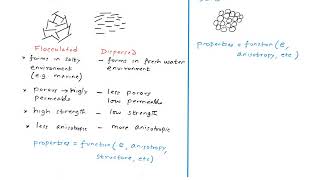 Flocculated
Dispersed
* forms in salty environment (e.g. marine)
- forms in fresh water environment
* porous → higly permeable
- less porous low permeable
* high strength
- low strength
* less anisotropic
- more anisotropic
properties = function (e, anisotropy,
structure, etc)
properties = function (e,
anisotropy, etc)